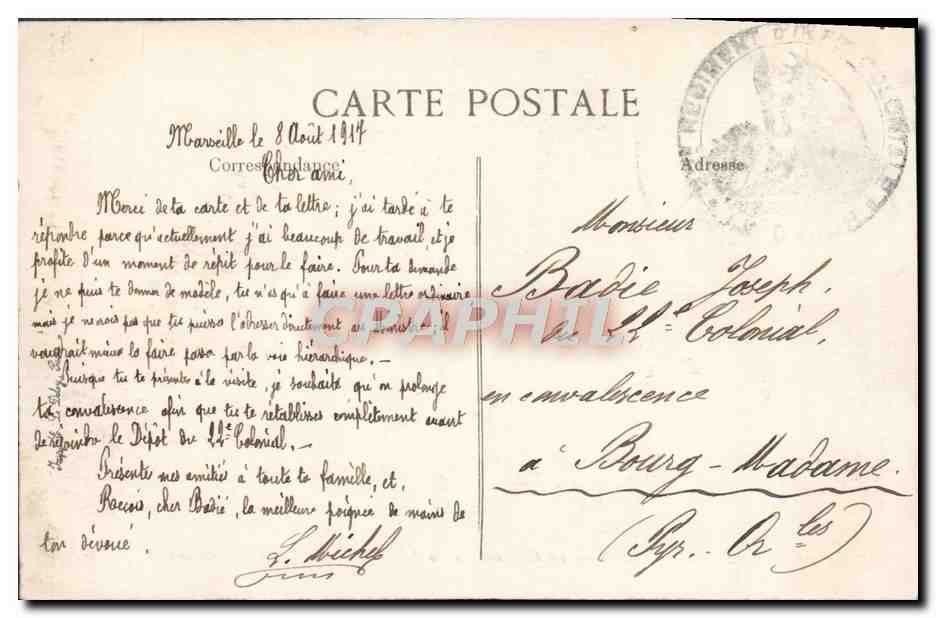 CARTE POSTALE
Marseille le 8 Août 1917
Correspondance
Cher ami,
Merci de ta carte et de ta lettre; j'ai tardé à te
répondre parce qu'actuellement j'ai beaucoup de travail, et je
profite d'un moment de répit pour le faire. Pour ta demande
je ne puis te donner de modèle, tu n'as qu'à faire une lettre ordinaire
mais je ne vois pas que tu puisses l'adresser directement au Ministre; il
vaudrait mieux la faire passer par la voie hiérarchique. —
Puisque tu te présentes à la visite, je souhaite qu'on prolonge
ta convalescence afin que tu te rétablisses complètement avant
de rejoindre le Dépôt du 22e Colonial. —
Présente mes amitiés à toute ta famille, et,
Reçois, cher Badie, la meilleure poignée de mains de
ton dévoué.
L. Michel
Adresse
Monsieur
Badie Joseph,
du 22e Colonial,
en convalescence
à Bourg-Madame.
(Pyr.. Or les)
REGIMENT D'INF COLONIALE
CRAPHIL